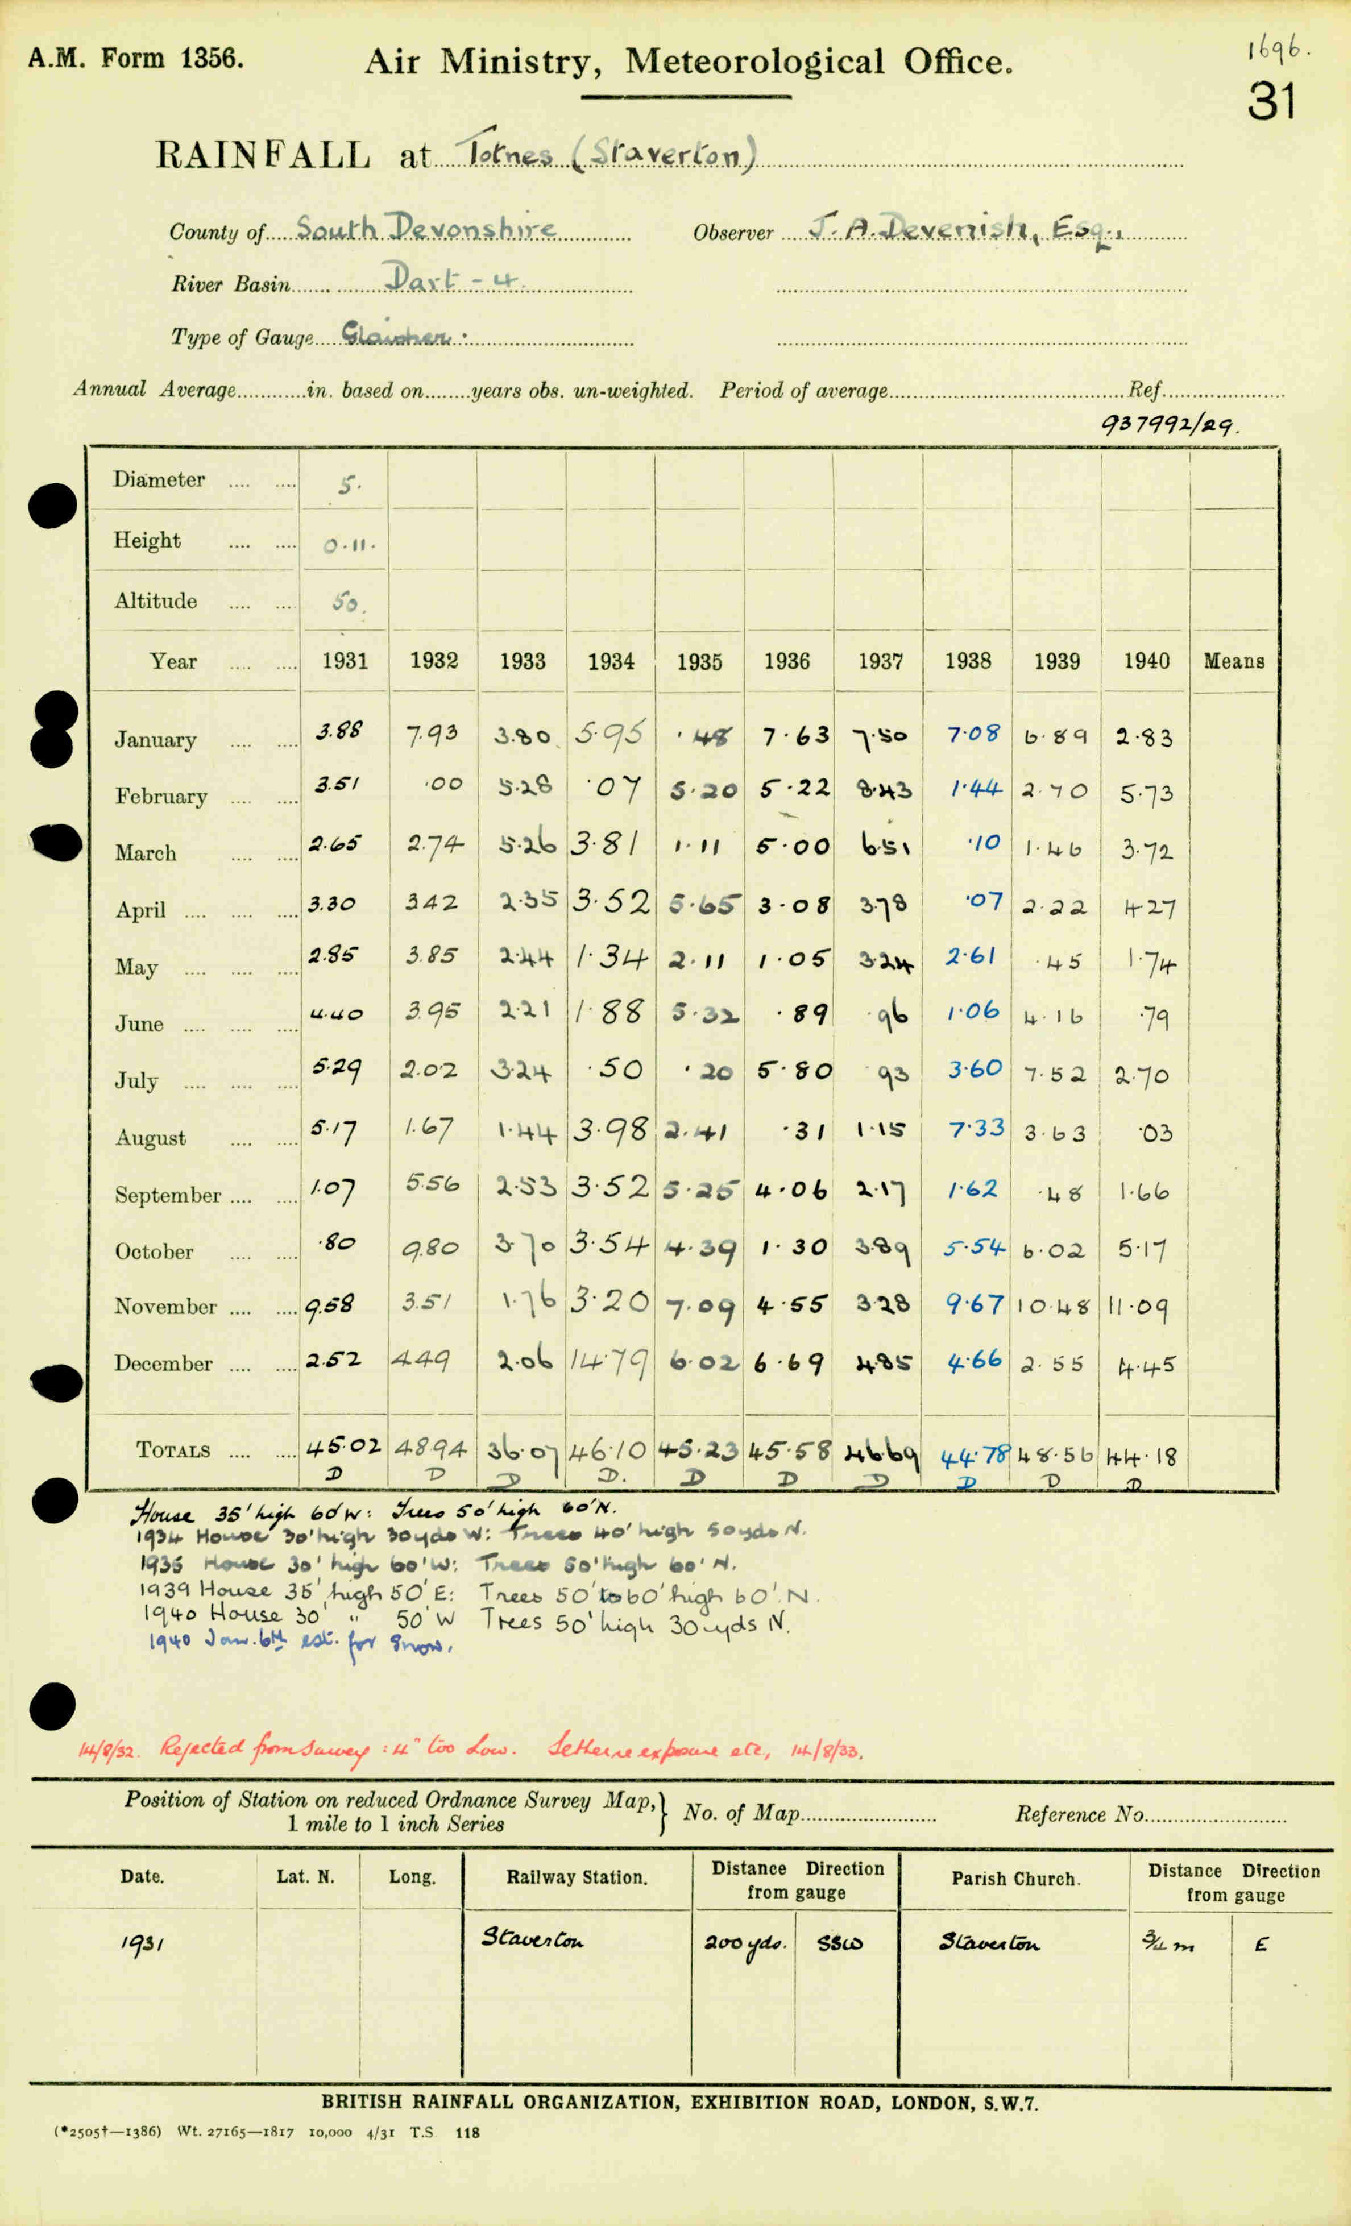 A.M. Form 1356. Air Ministry, Meteorological Office. 1696.
31
RAINFALL at Totnes (Staverton)
County of South Devonshire Observer J. A. Devenish, Esq.,
River Basin Dart - 4.
Type of Gauge Glaisher.
Annual Average in. based on years obs. un-weighted. Period of average Ref.
937992/29.
Diameter 5.
Height 0.11.
Altitude 50.
Year 1931 1932 1933 1934 1935 1936 1937 1938 1939 1940 Means
January 3.88 7.93 3.80 5.95 .48 7.63 7.50 7.08 6.89 2.83
February 3.51 .00 5.28 .07 5.20 5.22 8.43 1.44 2.70 5.73
March 2.65 2.74 5.26 3.81 1.11 5.00 6.51 .10 1.46 3.72
April 3.30 3.42 2.35 3.52 5.65 3.08 3.78 .07 2.22 4.27
May 2.85 3.85 2.44 1.34 2.11 1.05 3.24 2.61 .45 1.74
June 4.40 3.95 2.21 1.88 5.32 .89 .96 1.06 4.16 .79
July 5.29 2.02 3.24 .50 .20 5.80 .93 3.60 7.52 2.70
August 5.17 1.67 1.44 3.98 2.41 .31 1.15 7.33 3.63 .03
September 1.07 5.56 2.53 3.52 5.25 4.06 2.17 1.62 .48 1.66
October .80 9.80 3.70 3.54 4.39 1.30 3.89 5.54 6.02 5.17
November 9.58 3.51 1.76 3.20 7.09 4.55 3.28 9.67 10.48 11.09
December 2.52 4.49 2.06 14.79 6.02 6.69 4.85 4.66 2.55 4.45
TOTALS 45.02 48.94 36.07 46.10 45.23 45.58 46.69 44.78 48.56 44.18
D D D D. D D D D D D
House 35' high 60' W: Trees 50' high 60' N.
1934 House 30' high 30yds W: Trees 40' high 50yds N.
1935 House 30' high 60' W: Trees 50' high 60' N.
1939 House 35' high 50' E: Trees 50' to 60' high 60' N.
1940 House 30' " 50' W Trees 50' high 30 yds N.
1940 Jan. 6th est. for Snow.
14/8/32. Rejected from Survey: 4" too Low. Letter re exposure etc, 14/8/33.
Position of Station on reduced Ordnance Survey Map,} No. of Map Reference No.
1 mile to 1 inch Series
Date. Lat. N. Long. Railway Station. Distance Direction from gauge Parish Church. Distance Direction from gauge
1931 Staverton 200 yds. SSW Staverton 3/4 m E
BRITISH RAINFALL ORGANIZATION, EXHIBITION ROAD, LONDON, S.W.7.
(*2505†—1386) Wt. 27165—1817 10,000 4/31 T.S 118